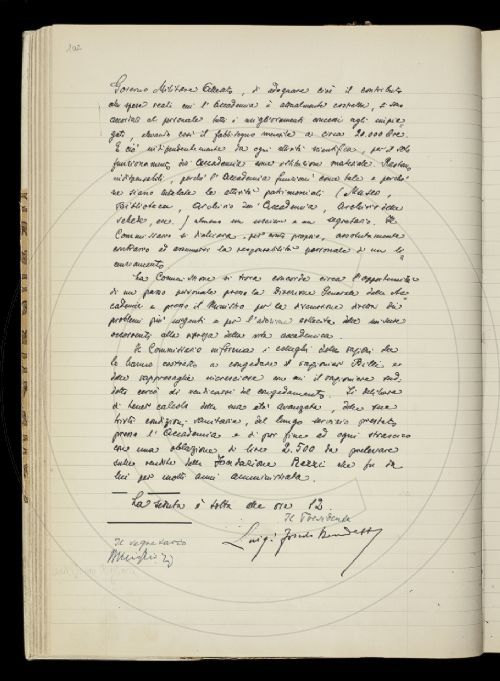 102
Governo Militare Alleato, di adeguare cioè il contributo
alle spese reali cui l'Accademia è attualmente costretta, e siano
accordati al personale tutti i miglioramenti concessi agli impie-
gati, elevando così il fabbisogno mensile a circa 20.000 lire.
E ciò indipendentemente da ogni attività scientifica, per il solo
funzionamento dell'Accademia come istituzione materiale. Restano
indispensabili, perché l'Accademia funzioni come tale e perché
ne siano tutelate le attività patrimoniali (Museo,
Biblioteca, Archivio dell'Accademia, Archivio delle
schede, ecc.) almeno un usciere e un segretario. Il
Commissario si dichiara, per conto proprio, assolutamente
contrario ad assumersi la responsabilità personale di un li-
cenziamento.
La Commissione si trova concorde circa l'opportunità
di un passo personale presso la Direzione Generale delle Ac-
cademie e presso il Ministro per la discussione diretta dei
problemi più urgenti e per l'adozione sollecita delle misure
occorrenti alla ripresa della vita accademica.
Il Commissario informa i colleghi delle ragioni che
lo hanno costretto a congedare il ragionier Pirelli, e
delle rappresaglie con cui il ragioniere sud-
detto cercò di vendicarsi del congedamento. Si delibera
di tener calcolo della sua età avanzata, delle sue
tristi condizioni sanitarie, del lungo servizio prestato
presso l'Accademia e di por fine ad ogni strascico
con una oblazione di lire 2.500 da prelevare
sulle rendite della Fondazione Pezzi che fu da
lui per molti anni amministrata.
La seduta è tolta alle ore 12
Il Presidente
Il segretario
Luigi